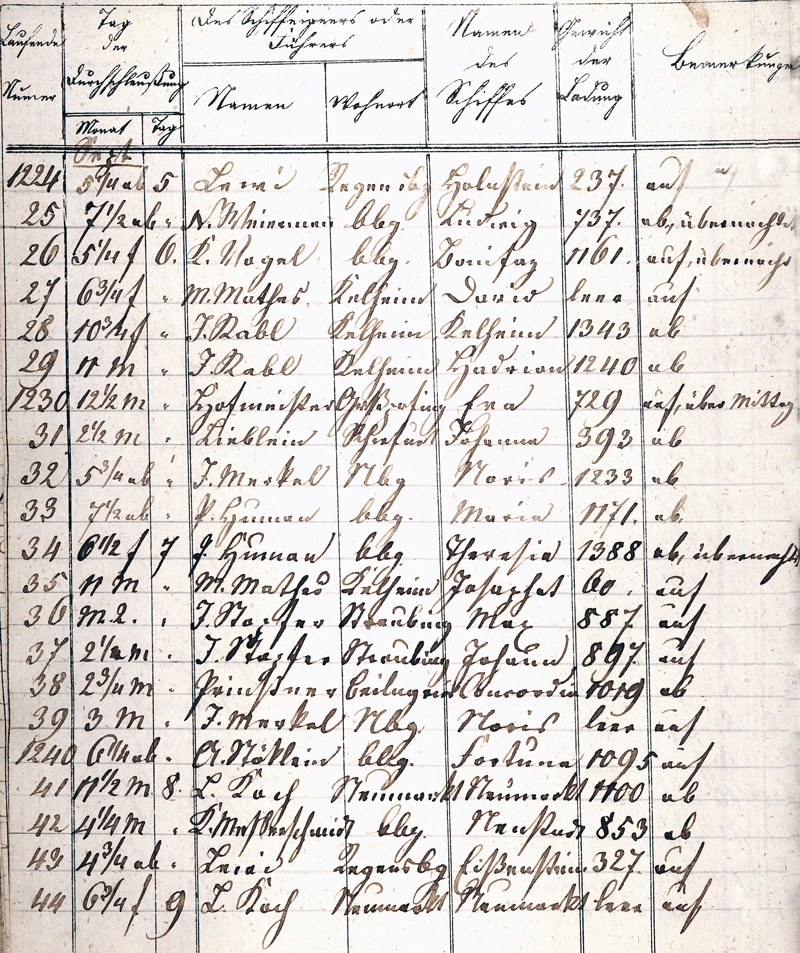 Laufende Numer | Tag der Durchschleußung | Des Schiffseigners oder Führers | Namen des Schiffes | Gewicht der Ladung | Bemerkungen
Monat | Tag | Namen | Wohnort
Sept.
1224 5¾ ab 5 Regensbg 237. auf
25 7½ ab " N. Meierman bbg. Ludwig 737. ab, übernachtet
26 5¼ f 6. K. Vogel bbg. Bonifaz 1161. auf, übernacht
27 6¾ f " M. Mathes Kelheim Dario leer auf
28 10¾ f " J. Rabl Kelheim Kelheim 1343 ab
29 11 M " J. Rabl Kelheim Hadrian 1240 ab
1230 12½ M " Hofmeister Eva 729 auf, über Mittag
31 2½ M " Lieblein Johanna 393 ab
32 5¾ ab " J. Merkel Nbg Noris 1233 ab
33 7½ ab " P. Human bbg. Maria 1171. ab
34 6½ f 7 J. Human bbg. Theresia 1388 ab, übernachtet
35 11 M " M. Mathes Kelheim Josaphat 60. auf
36 M. 2. " J. Straubing Max 887. auf
37 2½ M " J. Straubing Johann 897. auf
38 2¾ M " Beilngries Concordia 1019 ab
39 3 M " J. Merkel Nbg. Noris leer auf
1240 6¼ ab " A. Nöttlein bbg. Fortuna 1095 auf
41 11½ M 8. L. Koch Neumarkt Neumarkt 1100 ab
42 4¼ M " K. Messerschmidt bbg. Neustadt 853 ab
43 4¾ ab " Regensbg 327. auf
44 6¾ f 9 L. Koch Neumarkt Neumarkt leer auf